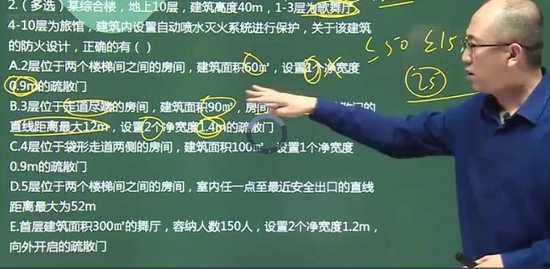 2.(多选)某综合楼，地上10层，建筑高度40m，1-3层为歌舞厅
4-10层为旅馆，建筑内设置自动喷水灭火系统进行保护，关于该建筑
的防火设计，正确的有( )
A.2层位于两个楼梯间之间的房间，建筑面积60㎡，设置1个净宽度
0.9m的疏散门
B.3层位于走道尽端的房间，建筑面积90㎡，房间 的
直线距离最大12m，设置2个净宽度1.4m的疏散门
C.4层位于袋形走道两侧的房间，建筑面积100㎡，设置1个净宽度
0.9m的疏散门
D.5层位于两个楼梯间之间的房间，室内任一点至最近安全出口的直线
距离最大为52m
E.首层建筑面积300㎡的舞厅，容纳人数150人，设置2个净宽度1.2m，
向外开启的疏散门
≤50 ≤15
25